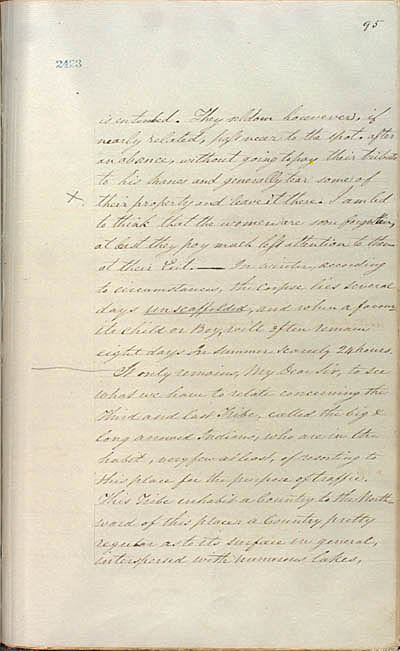 95
2423
is entombed. They seldom however, if
nearly related, pass near to the spot. after
an absence, without going to pay their tribute
to his manes and generally tear some of
X their property and leave it there. I am led
to think that the women are soon forgotten,
at least they pay much less attention to them
at their Exit. — In winter, according
to circumstances, the Corpse lies several
days unscaffolded, and when a favour
ite child or Boy, will often remain
eight days In summer scarcely 24 hours.
It only remains, My Dear Sir, to see
what we have to relate concerning the
Third and last Tribe, called the big &
long armed Indians, who are in the
habit, very few at least, of resorting to
this place for the purpose of traffic.
This Tribe inhabit a Country to the North
ward of this place a Country pretty
regular as to its surface in general,
interspersed with numerous lakes,